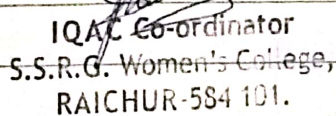 IQAC Co-ordinator
S.S.R.G. Women's College,
RAICHUR-584 101.